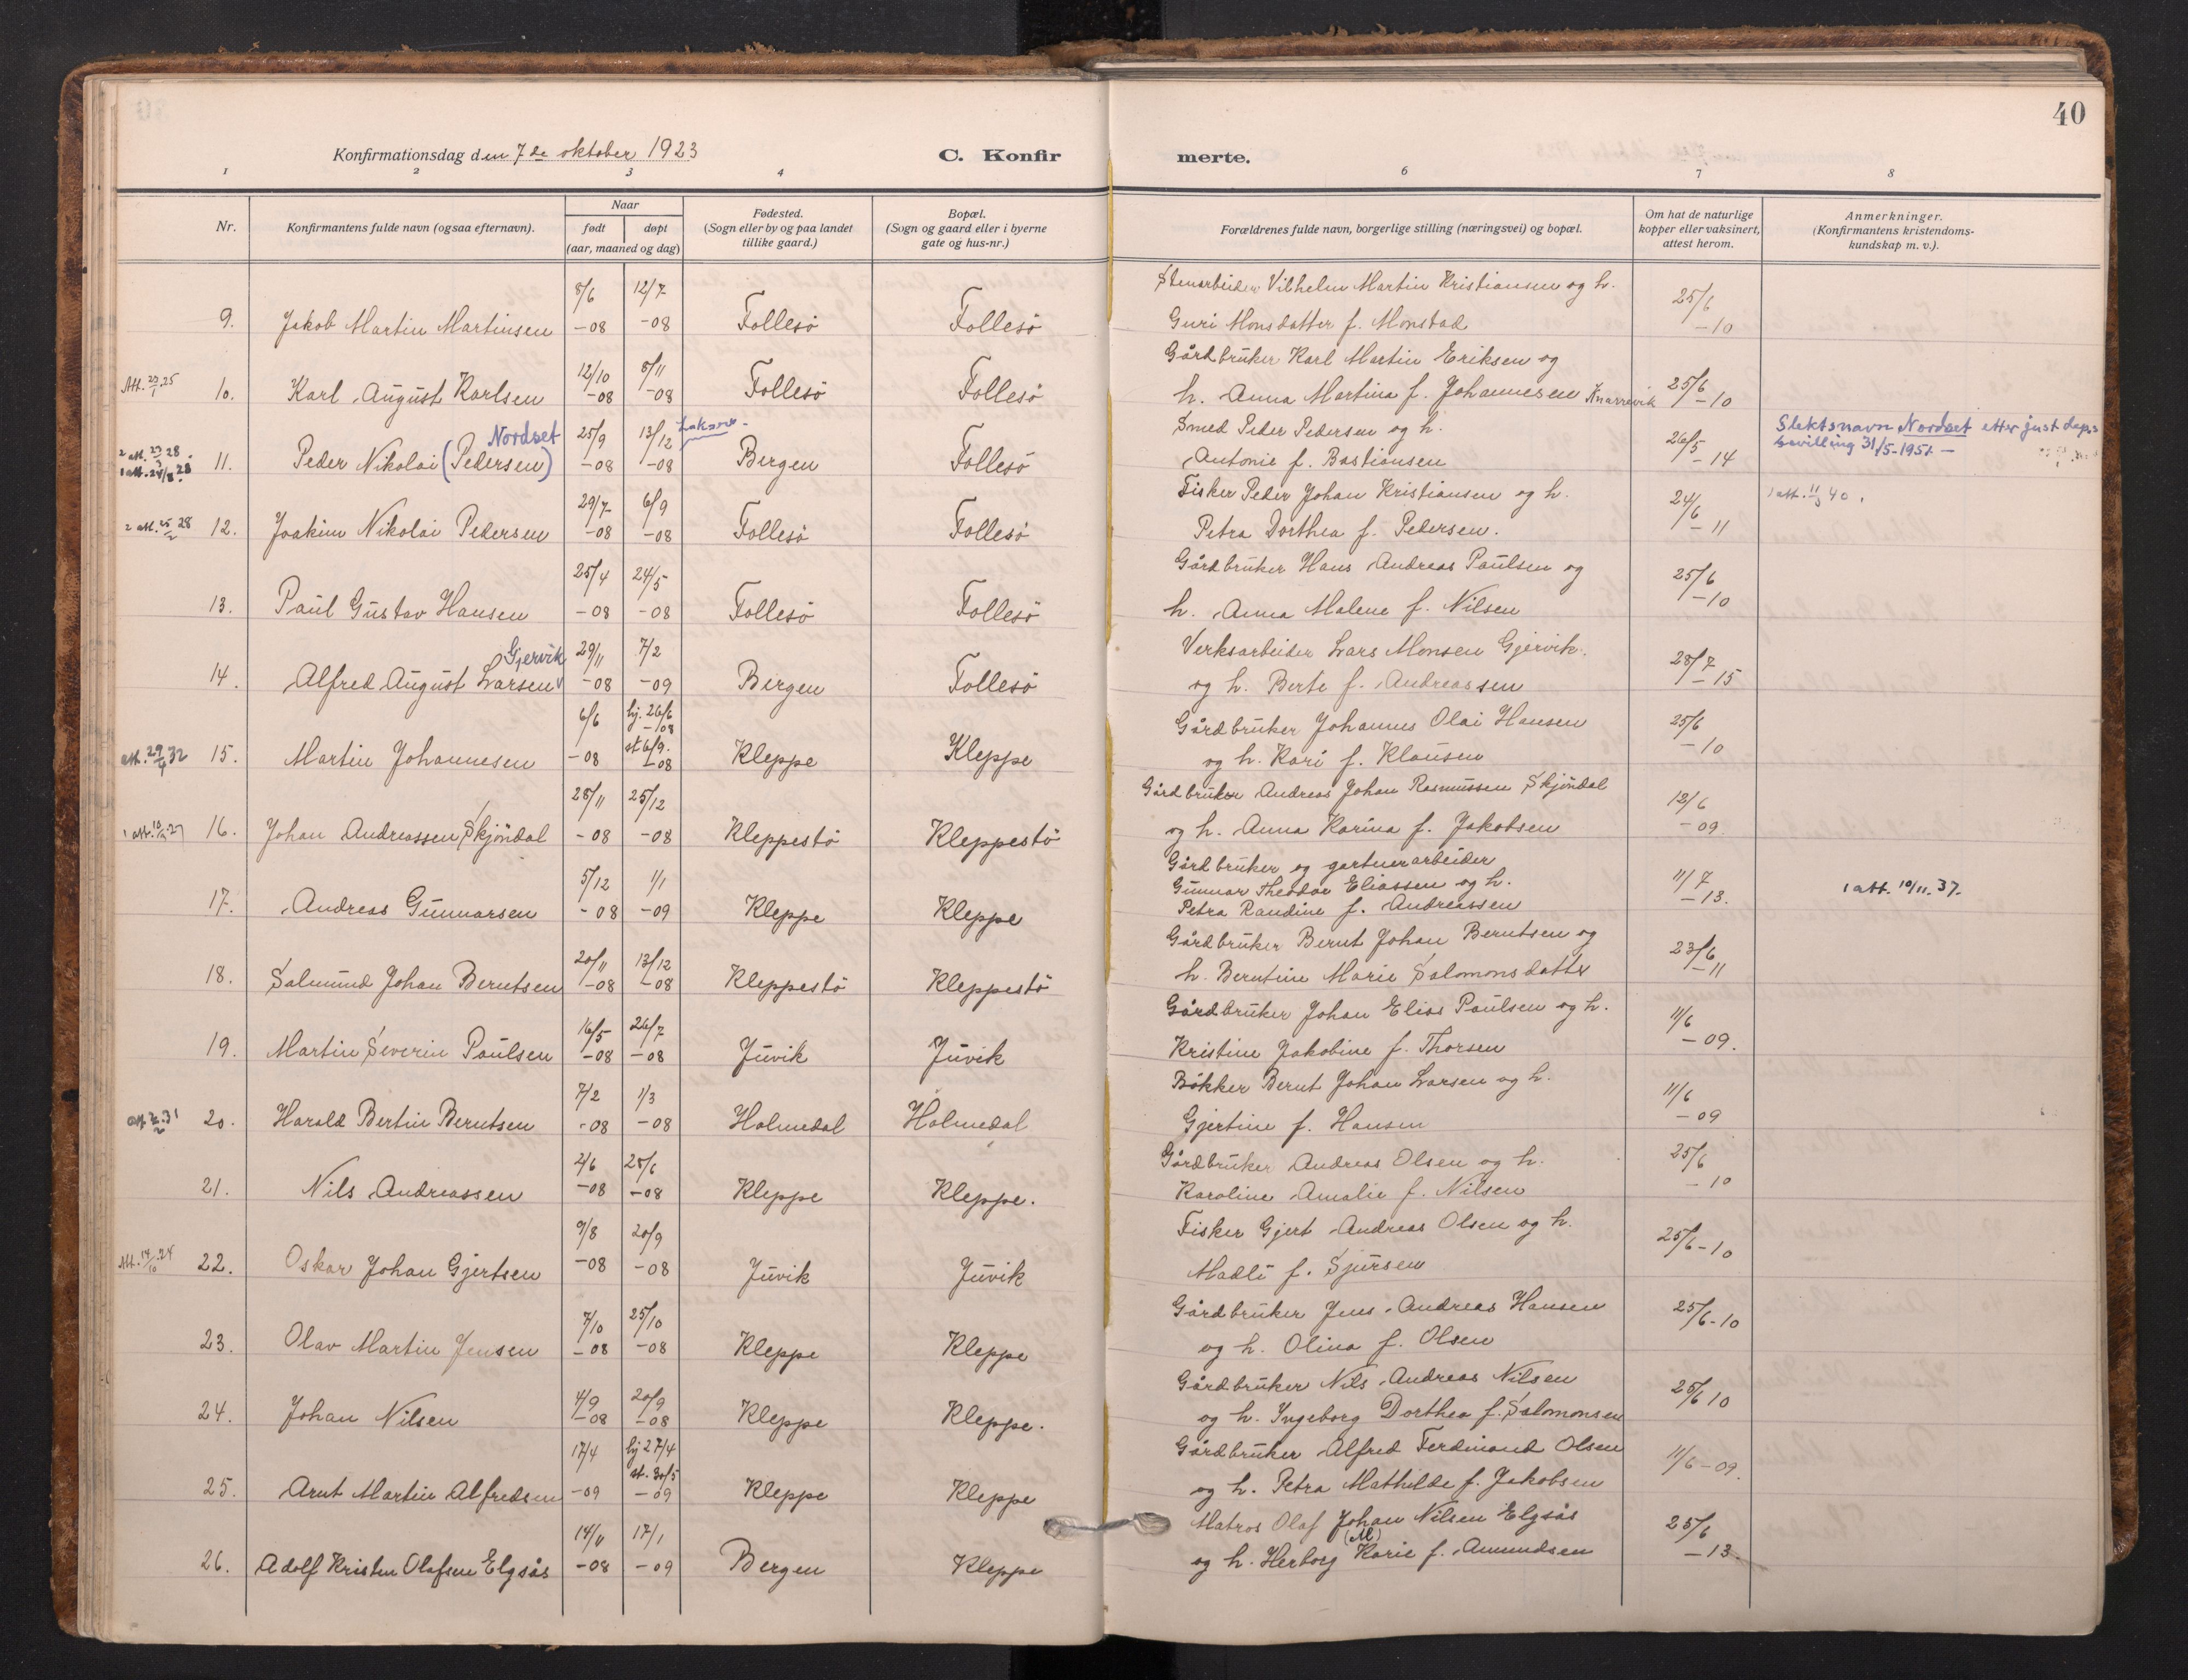 40
Konfirmationsdag den 7de oktober 1923
C. Konfir
merte.
1 2 3 4 6 7 8
Nr.
Konfirmantens fulde navn (ogsaa efternavn).
Naar
født
døpt
(aar, maaned og dag)
Fødested.
(Sogn eller by og paa landet
tillike gaard.)
Bopæl.
(Sogn og gaard eller i byerne
gate og hus-nr.)
Forældrenes fulde navn, borgerlige stilling (næringsvei) og bopæl.
Om hat de naturlige
kopper eller vaksinert,
attest herom.
Anmerkninger.
(Konfirmantens kristendoms-
kundskap m. v.).
8/6 12/7 Stenarbeider Vilhelm Martin Kristiansen og h. 25/6
9. Jakob Martin Martinsen -08 -08 Follesö Follesö Guri Monsdatter f. Monstad -10
12/10 8/11 Gårdbruker Karl Martin Eriksen og
Att. 23/1 25 10. Karl August Karlsen -08 -08 Follesö Follesö h. Anna Martina f. Johannesen Knarrevik 25/6 -10
Nordset 25/9 13/12 Smed Peder Pedersen og h. Slektsnavn Nordset etter just. deps
2 att. 23/3 28 1 att. 24/8 28 11. Peder Nikolai (Pedersen) -08 -08 Bergen Follesö Antonie f. Bastiansen 26/5 -14 bevilling 31/5-1951.-
29/7 6/9 Fisker Peder Johan Kristiansen og h. 24/6 1 att. 11/3 40.
2 att. 25/2 28 12. Joakim Nikolai Pedersen -08 -08 Follesö Follesö Petra Dorthea f. Pedersen. -11
25/4 24/5 Gårdbruker Hans Andreas Paulsen og 25/6
13. Paul Gustav Hansen -08 -08 Follesö Follesö h. Anna Malene f. Nilsen -10
Gjervik 29/11 7/2 Verksarbeider Lars Monsen Gjervik. 28/7
14. Alfred August Larsen -08 -09 Bergen Follesö og h. Berte f. Andreassen -15
6/6 hj. 26/6 -08 Gårdbruker Johannes Olai Hansen 25/6
att. 29/4 32 15. Martin Johannesen -08 st. 6/9. -08 Kleppe Kleppe og h. Kari f. Klausen -10
28/11 25/12 Gårdbruker Andreas Johan Rasmussen Skjöndal 12/6
16. Johan Andreassen Skjöndal -08 -08 Kleppestö Kleppestö og h. Anna Karina f. Jakobsen -09.
5/12 1/1 Gårdbruker og gartnerarbeider
Gunnar Theodor Eliassen og h. 11/7
17. Andreas Gunnarsen -08 -09 Kleppe Kleppe Petra Randine f. Andreassen -13. 1 att. 10/11. 37.
20/11 13/12 Gårdbruker Bernt Johan Berntsen og 23/6
18. Salmund Johan Berntsen -08 -08 Kleppestö Kleppestö h. Berntine Marie Salomonsdatter -11
16/5 26/7 Gårdbruker Johan Elias Paulsen og h. 11/6
19. Martin Severin Paulsen -08 -08 Juvik Juvik Kristine Jakobine f. Thorsen -09.
7/2 1/3 Bökker Bernt Johan Larsen og h. 11/6
20. Harald Bertin Berntsen -08 -08 Holmedal Holmedal Gjertine f. Hansen -09
2/6 28/6 Gårdbruker Andreas Olsen og h. 25/6
21. Nils Andreassen -08 -08 Kleppe Kleppe. Karoline Amalie f. Nilsen -10
9/8 20/9 Fisker Gjert Andreas Olsen og h.
Att. 14/10 24 22. Oskar Johan Gjertsen -08 -08 Juvik Juvik Madli f. Sjursen 25/6-10
7/10 25/10 Gårdbruker Jens Andreas Hansen
23. Olav Martin Jensen -08 -08 Kleppe Kleppe og h. Olina f. Olsen 25/6-10
4/9 20/9 Gårdbruker Nils Andreas Nilsen
24. Johan Nilsen -08 -08 Kleppe Kleppe. og h. Ingeborg Dorthea f. Salomonsen 25/6 10
17/4 hj 27/4 Gårdbruker Alfred Ferdinand Olsen
st. 30/5
25. Arnt Martin Alfredsen -09 -09 Kleppe Kleppe og h. Petra Mathilde f. Jakobsen 11/6-09.
14/11 17/1 Matros Olaf Johan Nilsen Elgsås 25/6
(M)
26. Adolf Kristen Olafsen Elgsås -08 -09 Bergen Kleppe og h. Herborg Karie f. Amundsen -13.